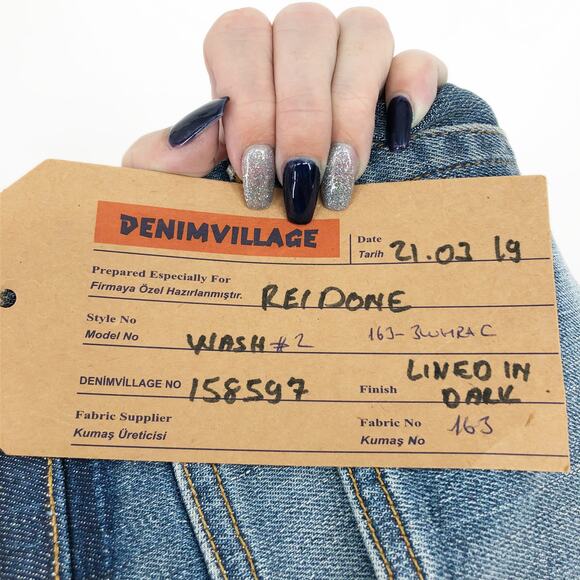 DENIMVILLAGE
Date
Tarih 21.03 19
Prepared Especially For
Firmaya Özel Hazırlanmıştır. REIDONE
Style No
Model No WASH #2 163-3WHRAC
DENİMVİLLAGE NO 158597 Finish LINED IN
DARK
Fabric Supplier
Kumaş Üreticisi
Fabric No 163
Kumaş No